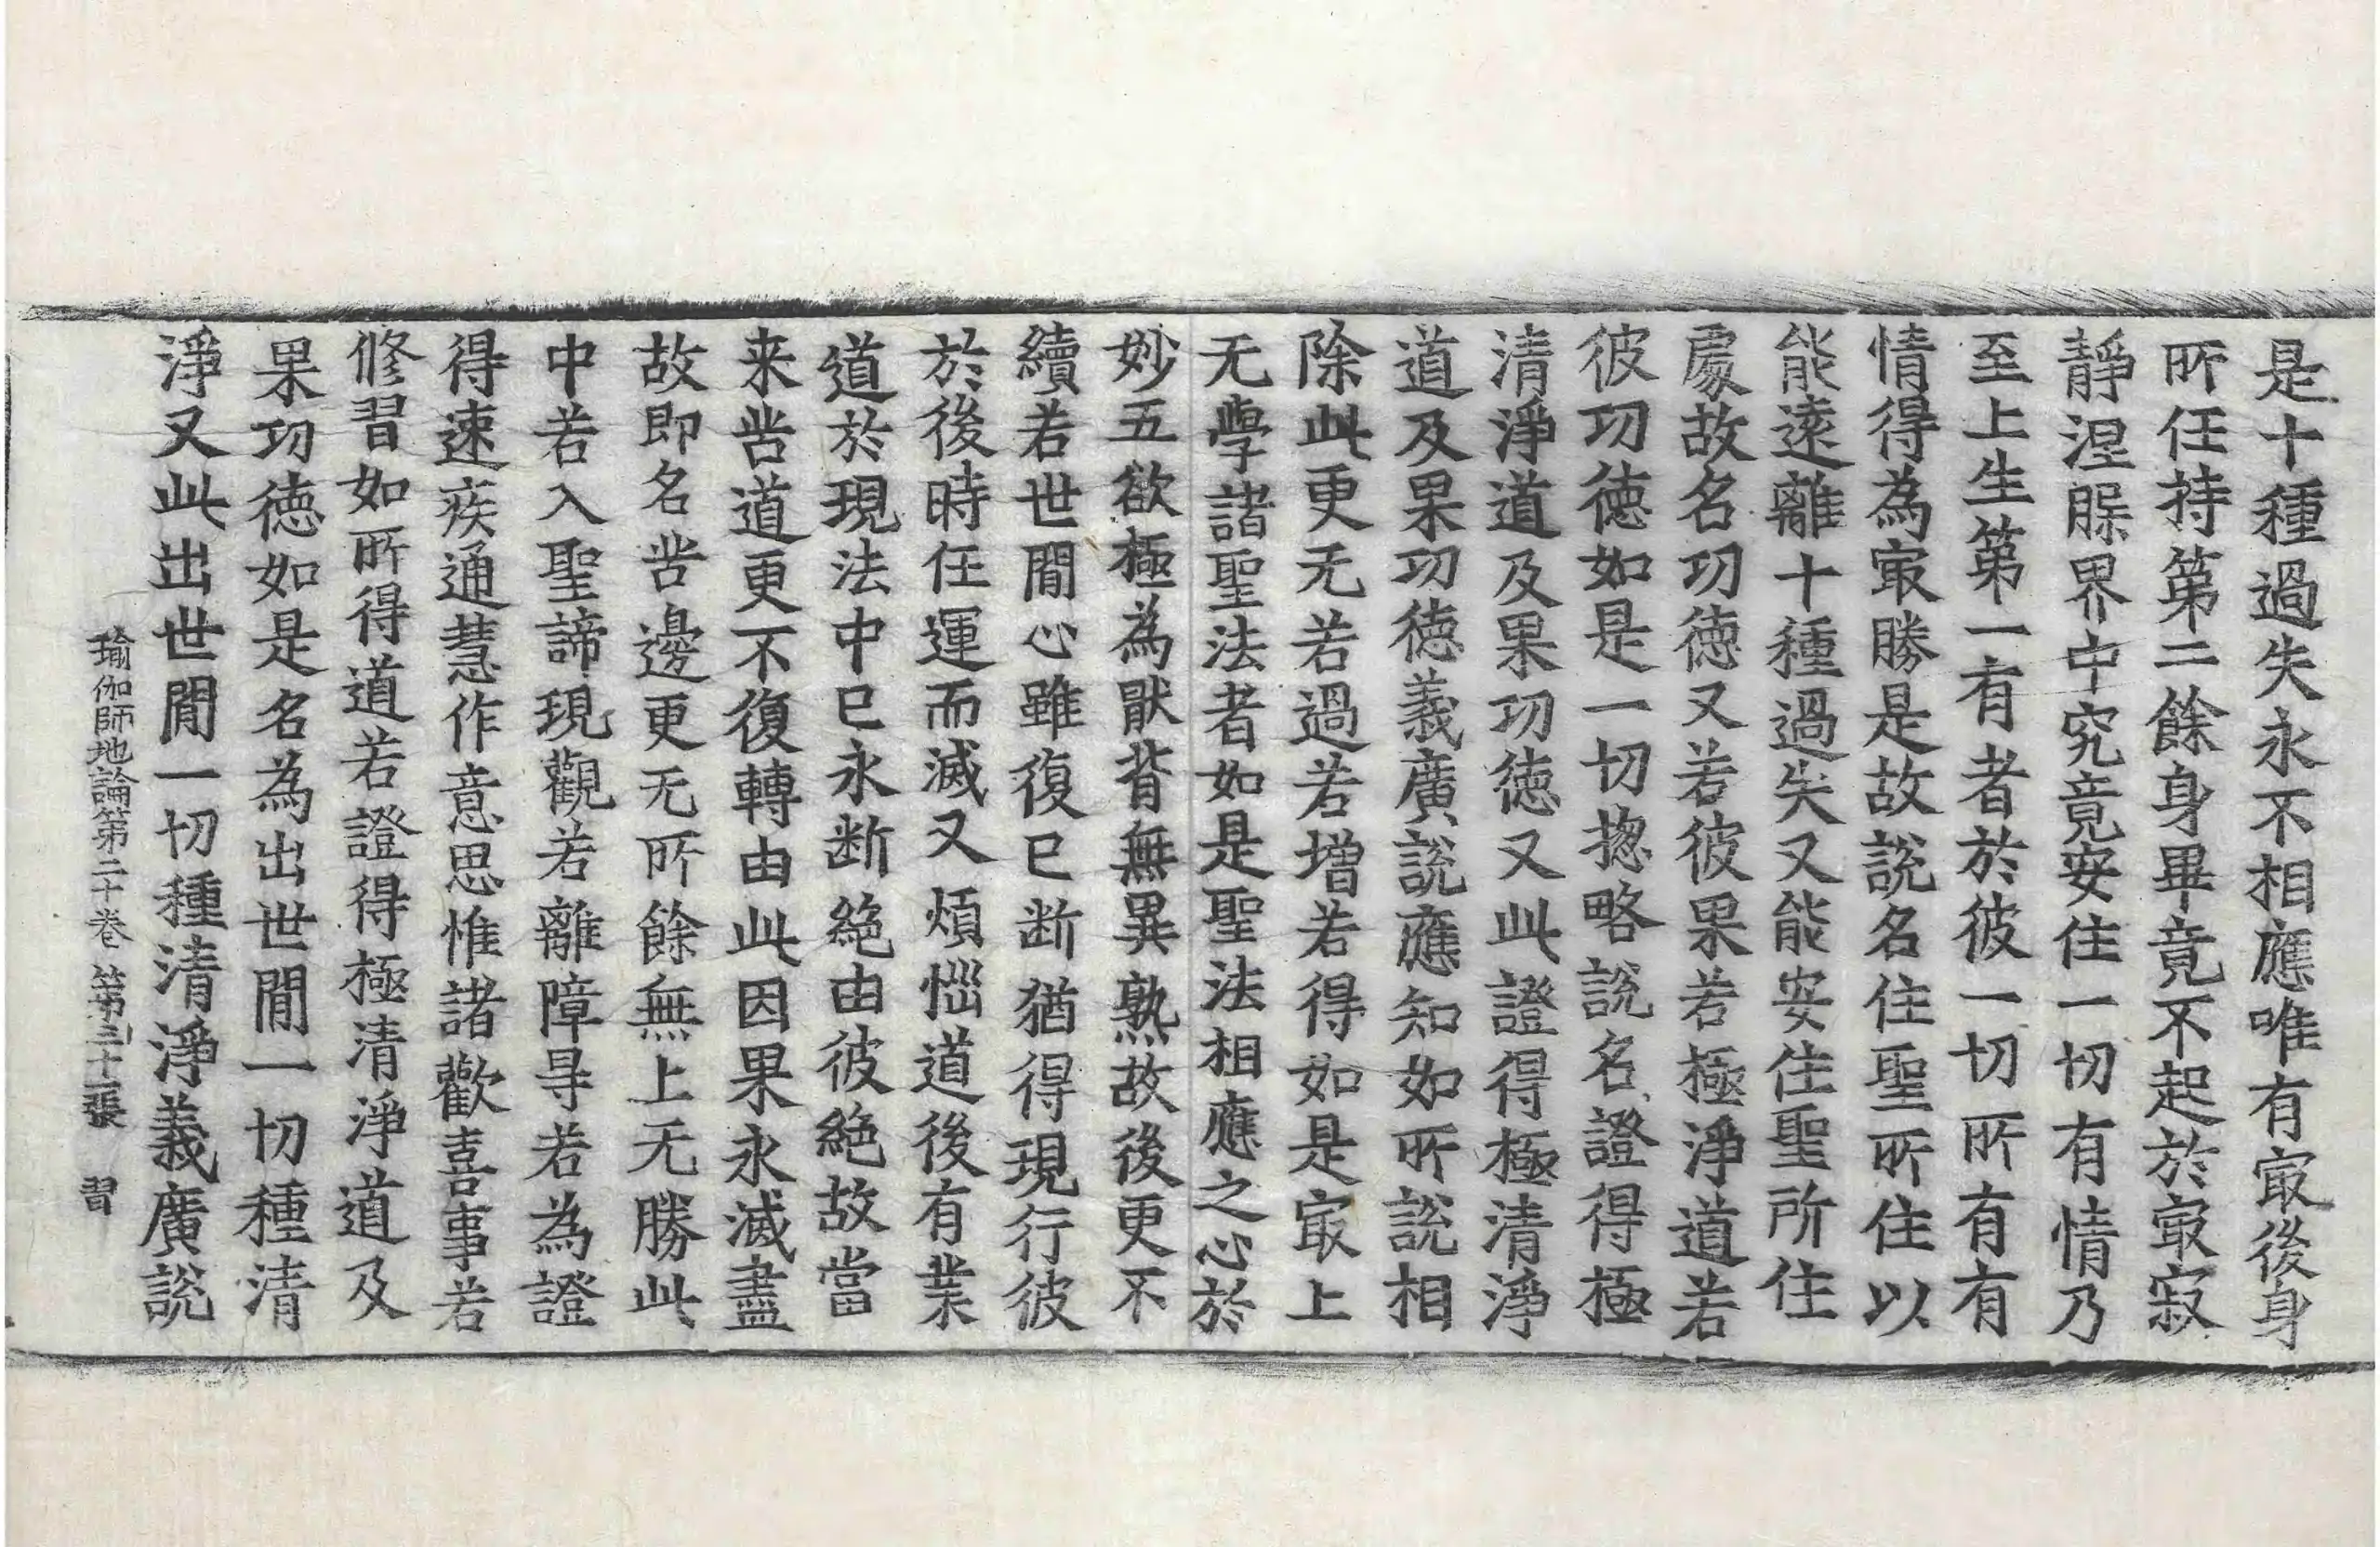 是十種過失永不相應唯有㝡後身
所任持第二餘身畢竟不起於㝡寂
靜涅槃界中究竟安住一切有情乃
至上生第一有者於彼一切所有有
情得為㝡勝是故說名住聖所住以
能遠離十種過失又能安住聖所住
處故名功德又若彼果若極淨道若
彼功德如是一切揔略說名證得極
清淨道及果功德又此證得極清淨
道及果功德義廣說應知如所說相
除此更无若過若增若得如是㝡上
无學諸聖法者如是聖法相應之心於
妙五欲極為猒背無異熟故後更不
續若世間心雖復已断猶得現行彼
於後時任運而滅又煩惱道後有業
道於現法中已永断絕由彼絕故當
来苦道更不復轉由此因果永滅盡
故即名苦邊更无所餘無上无勝此
中若入聖諦現觀若離障㝵若為證
得速疾通慧作意思惟諸歡喜事若
修習如所得道若證得極清淨道及
果功德如是名為出世間一切種清
淨又此出世間一切種清淨義廣說
瑜伽師地論第二十卷 第三十張 習